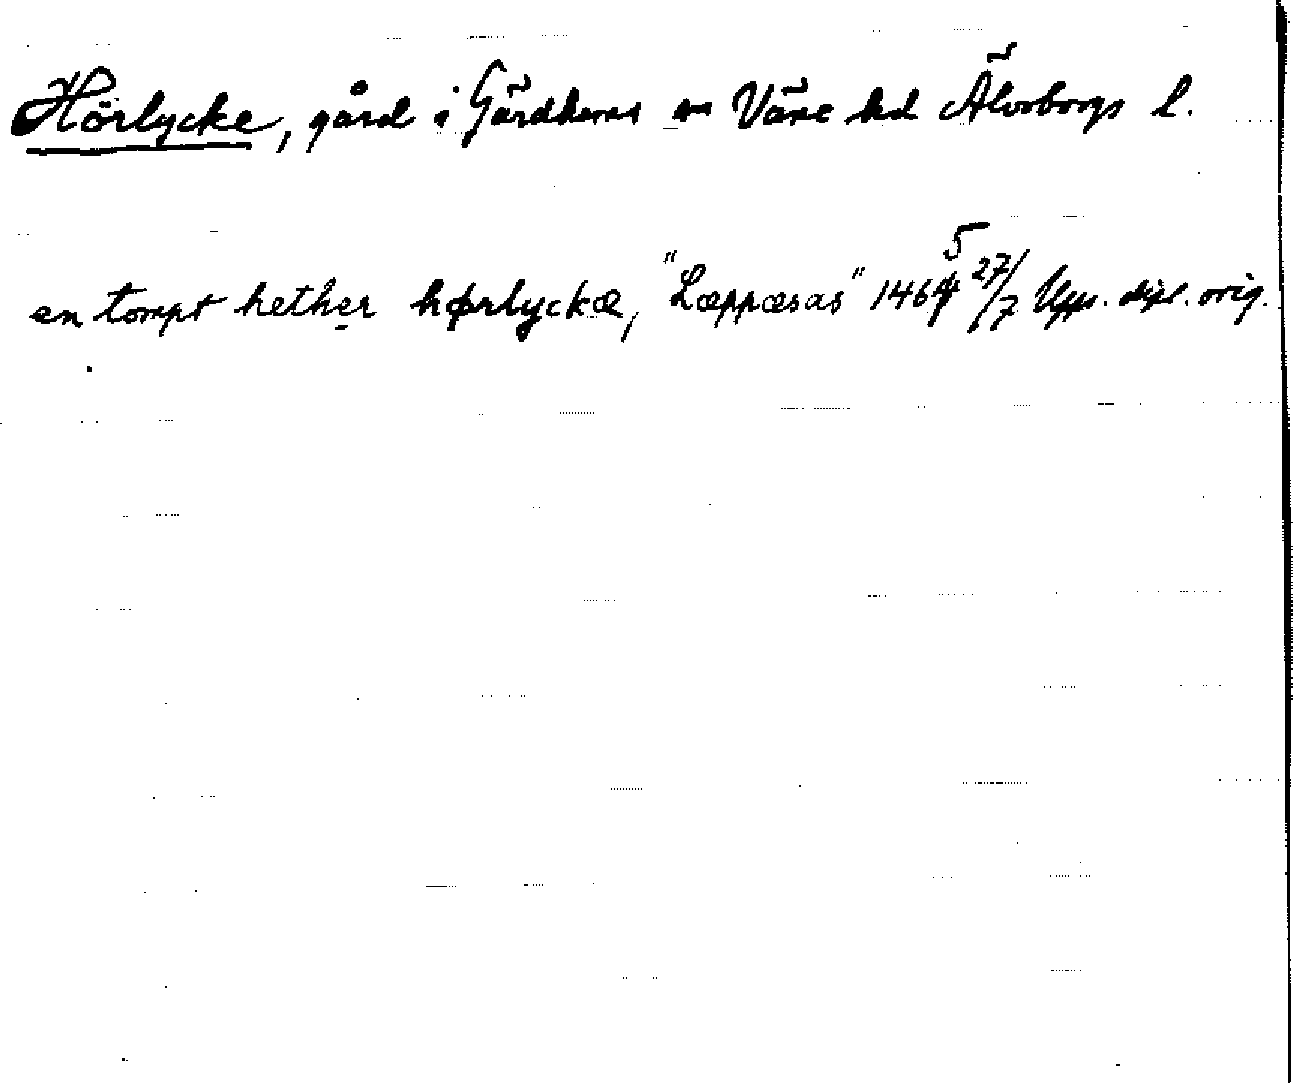 Hörlycke, gård i Gärdhems sn Väne hd Älvsborgs l.
en tompt hether hørlyckæ, "Læppæsas" 1465 27/7 Upps. dipl. orig.